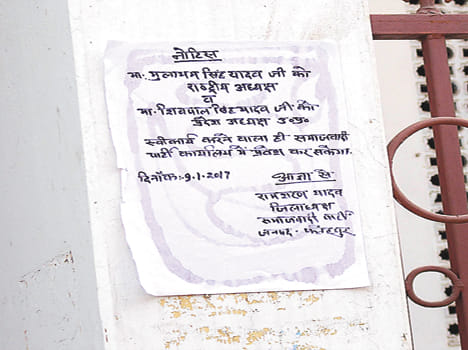 नोटिस
मा. मुलायम सिंह यादव जी को
राष्ट्रीय अध्यक्ष
व
मा. शिवपाल सिंह यादव जी को
प्रदेश अध्यक्ष उ.प्र.
स्वीकार्य करने वाला ही समाजवादी
पार्टी कार्यालय में प्रवेश कर सकेगा.
दिनाँक:-9.1.2017 आज्ञा से
यादव
जिलाध्यक्ष
समाजवादी पार्टी
जनपद-